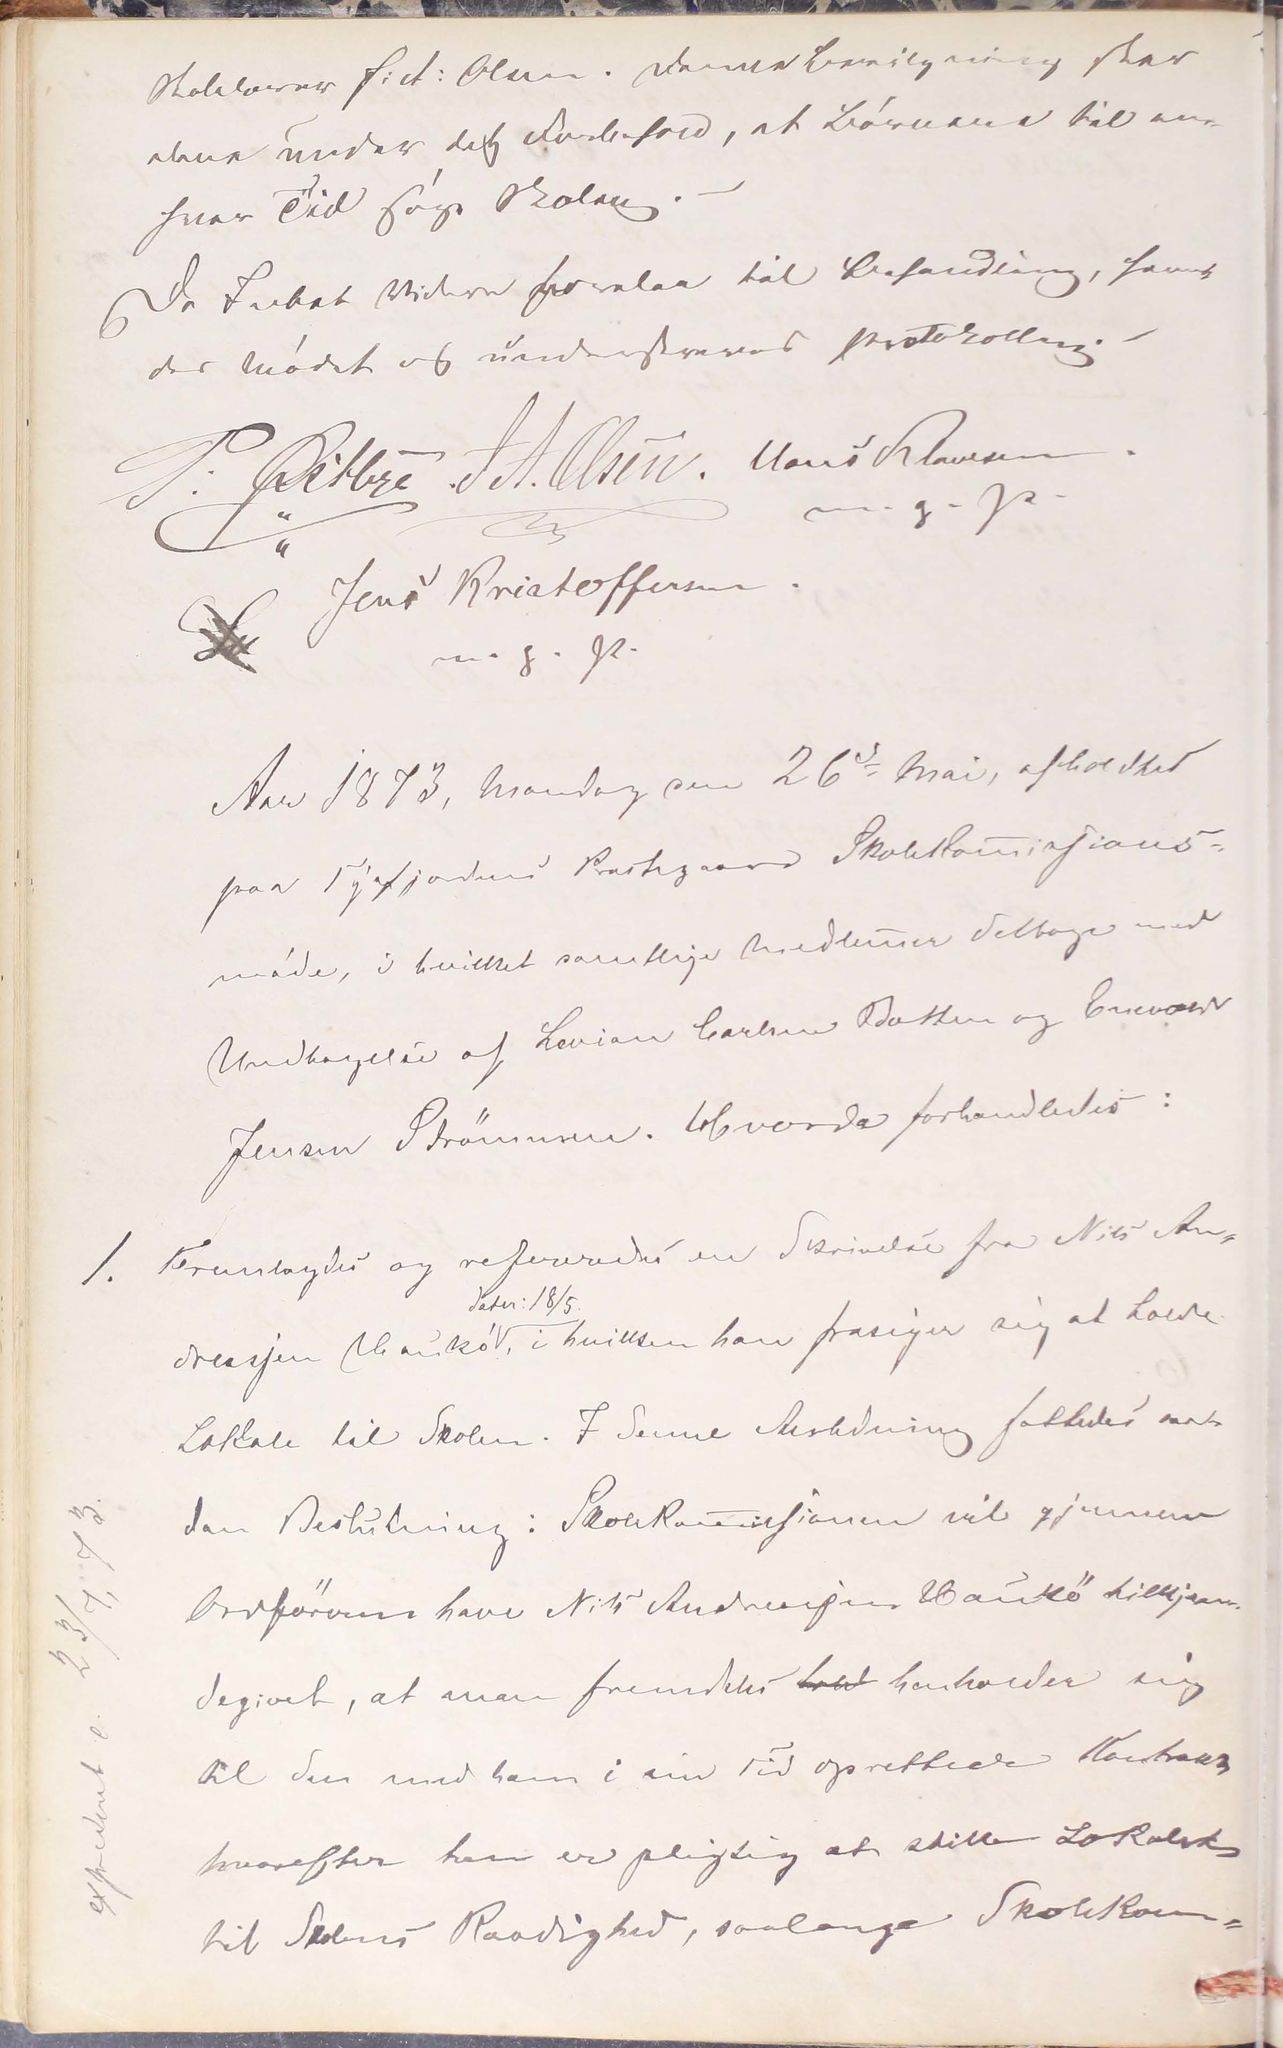 Skolelærer S. A: Olsen. Denne Bevilgning sker
alene under det Forbehold, at Börnene til en-
hver Tid söge Skolen. —
Da Intet videre forelaa til Behandling, hæve-
des Mödet og underskreves Protokollen. —
P. J. A. Olsen. Hans Klausen.
m. g. P.
Jens Kristoffersen.
m. g. P.
Aar 1873, Mandag den 26de Mai, afholdtes
paa Tysfjordens Prestegaard Skolekommissions-
möde, i hvilket samtlige Medlemmer deltoge med
Undtagelse af Carlsen Botten og Enevold
Jensen Strömsnes. Hvorda forhandledes:
1. Fremlagdes og refereredes en Skrivelse fra Nils An-
dater: 18/5.
dreasjen Haukö, i hvilken han frasiger sig at holde
Lokale til Skolen. I denne Anledning fattedes saa-
dan Beslutning: Skolekommissionen vil gjennem
Ordföreren have Nils Andreasjen Haukö tilkjen-
degivet, at man fremdeles hold henholder sig
til den med ham i sin Tid oprettede Kontrakt
hvorefter han er pligtig at stille Lokalet
til Skolens Raadighed, saalenge Skolekom-
expederet e. 23/7, 73.